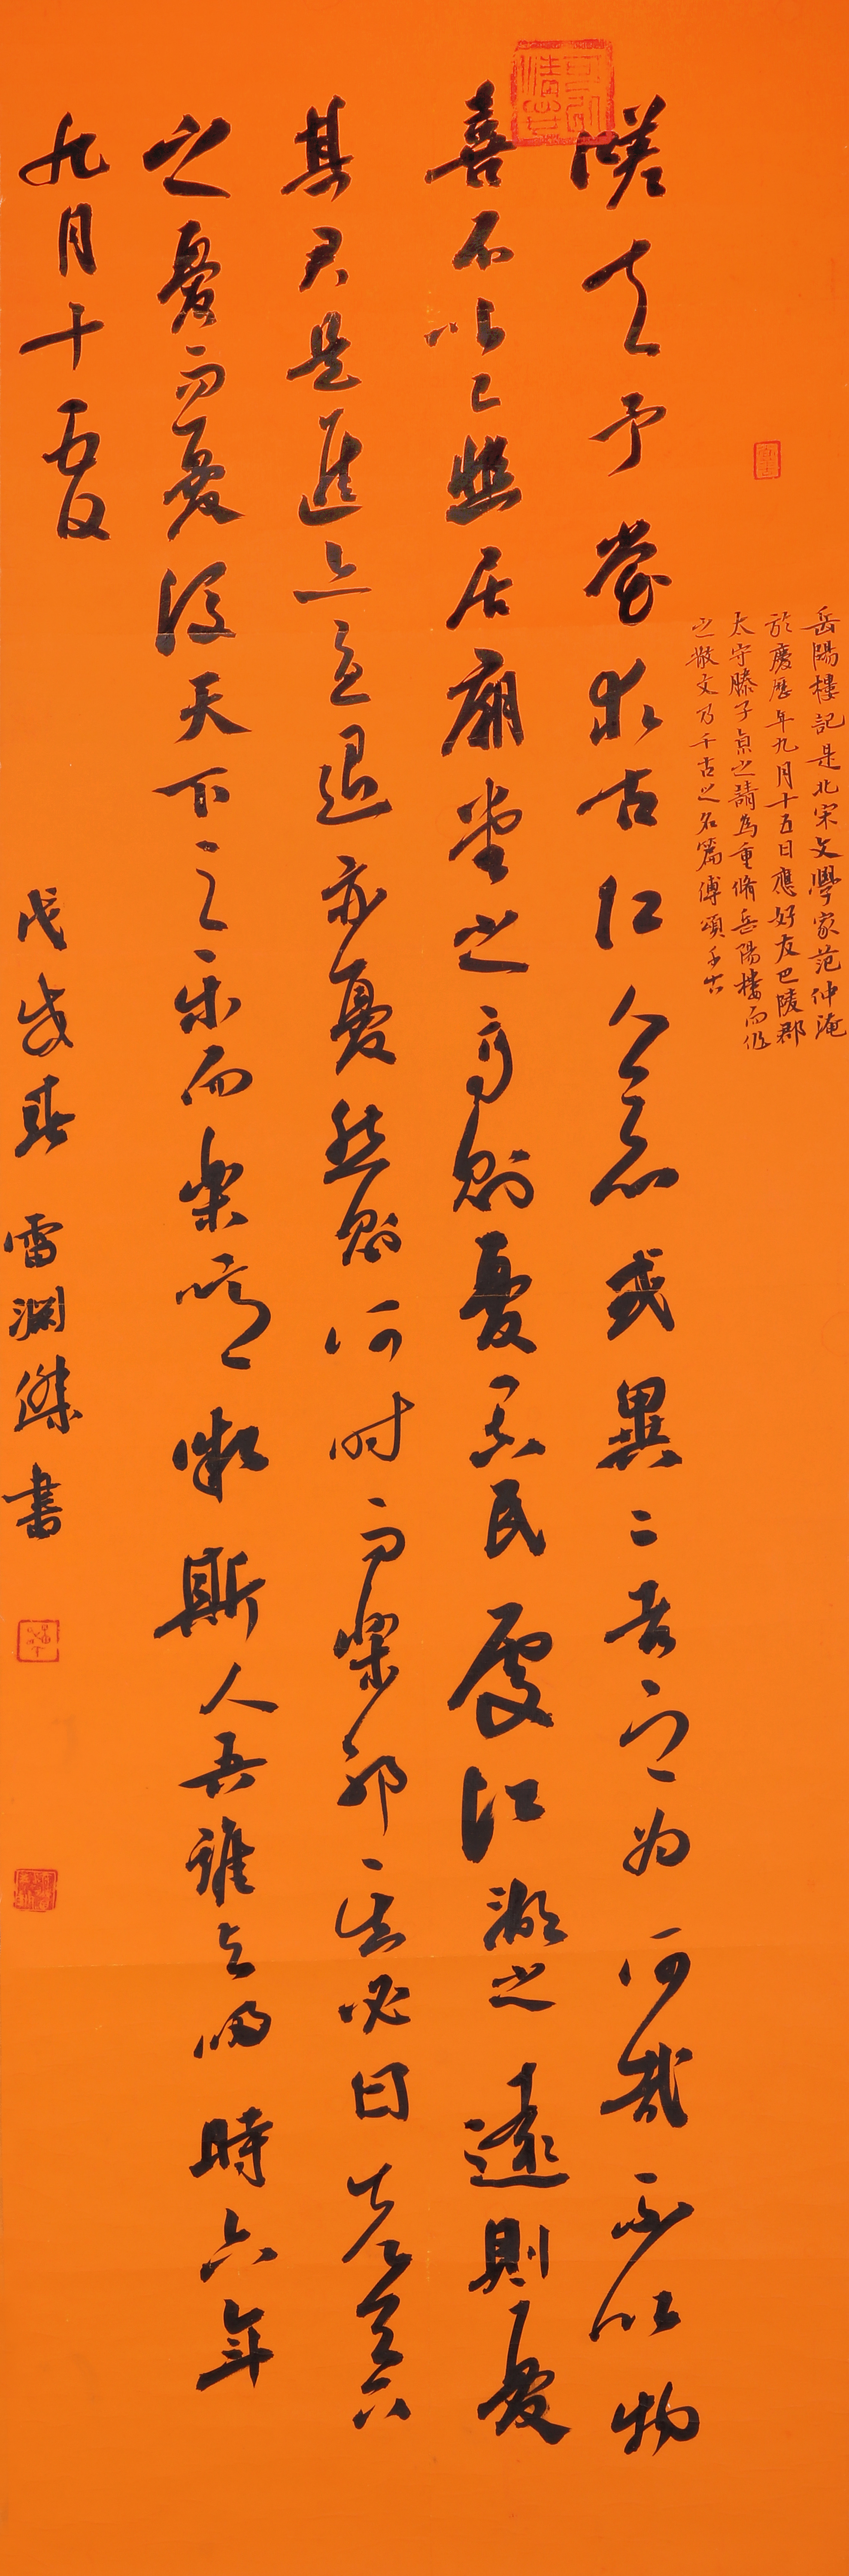 岳陽樓記是北宋文學家范仲淹
於慶歷年九月十五日應好友巴陵郡
太守滕子京之請為重脩岳陽樓而作
之散文乃千古之名篇傳頌千古
嗟夫予嘗求古仁人之心或異二者之為何哉不以物
喜不以己悲居廟堂之高則憂其民處江湖之遠則憂
其君是進亦憂退亦憂然則何时而樂耶其必曰先天下
之憂而憂後天下之樂而樂乎噫微斯人吾誰与歸時六年
九月十五日
戊戌春 雷淵傑書